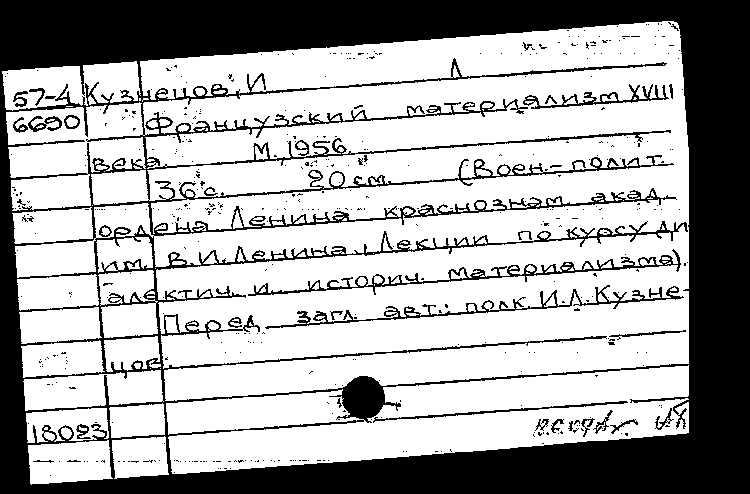 57-4 Кузнецов, И Л
6690 Французский материализм XVIII
века. М., 1956.
36 с. 20 см. (Воен.-полит.
ордена Ленина краснознам. акад.
им. В.И.Ленина. Лекции по курсу ди
алектич. и историч. материализма).
Перед загл. авт.: полк. И.Л.Кузне-
цов.
18023